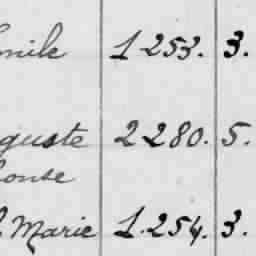 Emile 1 253. 3.
guste 2 280. 5.
onse
Marie 1. 254. 3.